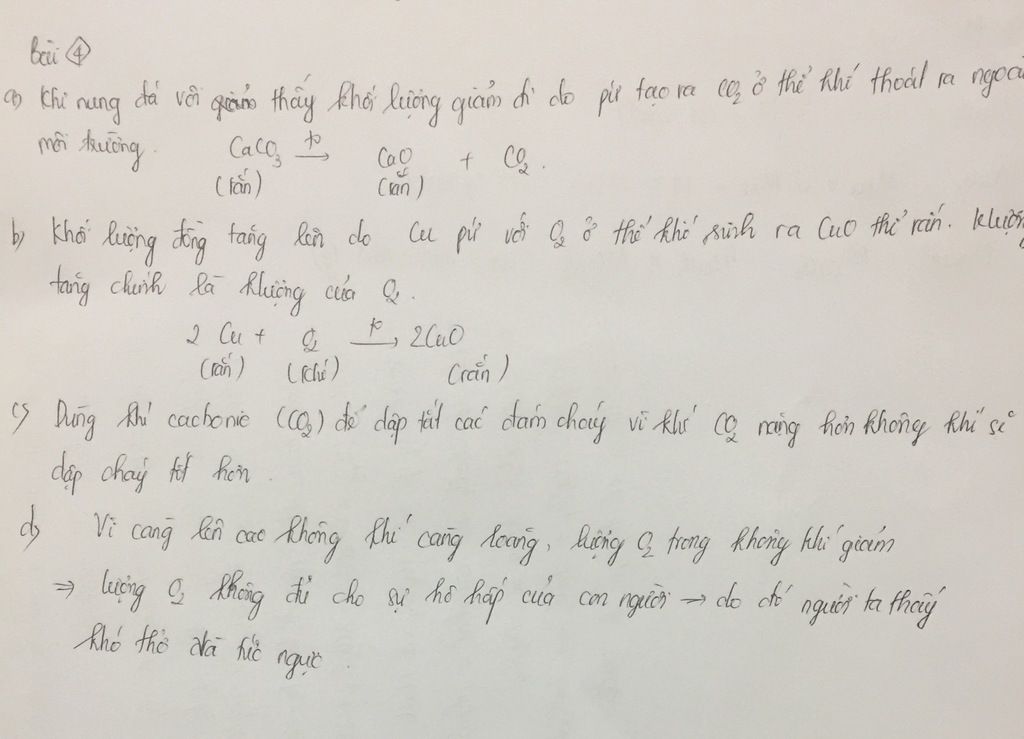 Bài 4
a) Khi nung đá vôi thấy khối lượng giảm đi do pứ tạo ra CO₂ ở thể khí thoát ra ngoài
môi trường. CaCO₃ →(t°) CaO + CO₂.
(rắn) (rắn)
b) Khối lượng đồng tăng lên do Cu pứ với O₂ ở thể khí sinh ra CuO thể rắn. Klượng
tăng chính là klượng của O₂.
2 Cu + O₂ →(t°) 2CuO
(rắn) (khí) (rắn)
c) Dùng khí cacbonic (CO₂) để dập tắt các đám cháy vì khí CO₂ nặng hơn không khí sẽ
dập cháy tốt hơn.
d) Vì càng lên cao không khí càng loãng, lượng O₂ trong không khí giảm
⇒ lượng O₂ không đủ cho sự hô hấp của con người → do đó người ta thấy
khó thở và tức ngực.